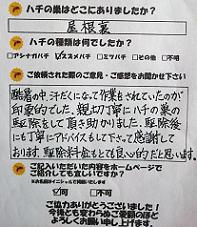 ハチの巣はどこにありましたか？
屋根裏
ハチの種類は何でしたか？
□アシナガバチ ☑スズメバチ □ミツバチ □その他 □不明
ご依頼された際のご意見・ご感想をお聞かせ下さい
酷暑の中、汗だくになって作業をされていたのが
印象的でした。親切丁寧にハチの巣の
駆除をして頂き助かりました。駆除後
にも丁寧にアドバイスもして下さって感謝して
おります。駆除料金もとても良心的だと思います。
ご記入いただいた内容をホームページで
ご紹介しても宜しいですか？
☑可 □不可
ご協力ありがとうございました！
今後とも変わらぬご愛顧のほど
よろしくお願い申し上げます。